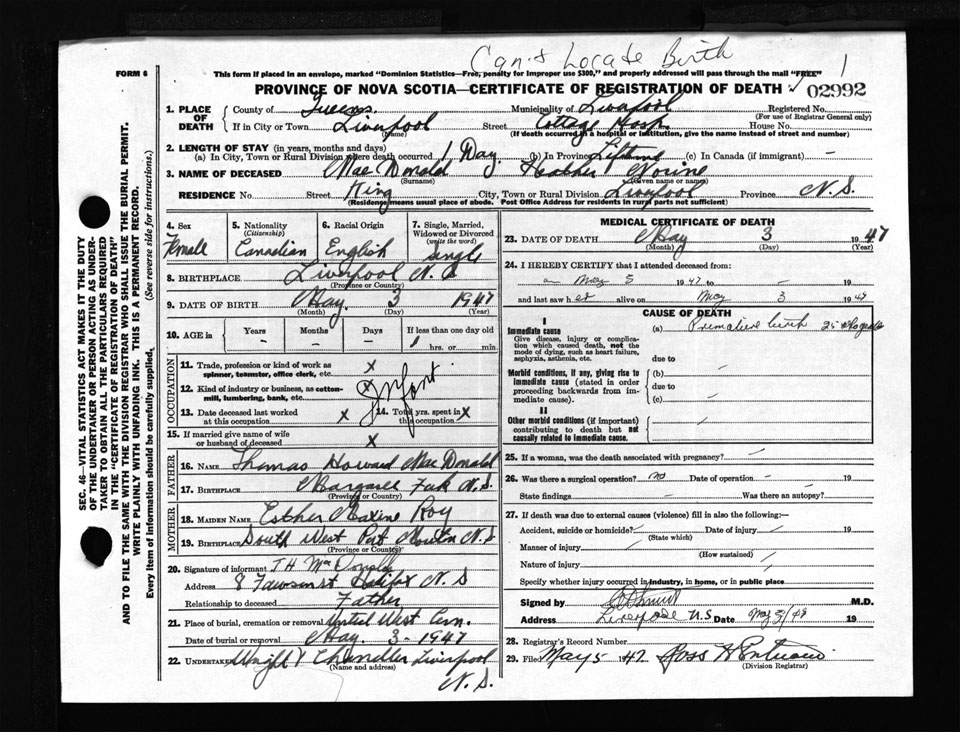 Can't Locate Birth
1
FORM 6
This form if placed in an envelope, marked "Dominion Statistics—Free, penalty for improper use $300," and properly addressed will pass through the mail "FREE"
PROVINCE OF NOVA SCOTIA—CERTIFICATE OF REGISTRATION OF DEATH 02992
1. PLACE OF DEATH
County of Queens Municipality of Liverpool Registered No.
(For use of Registrar General only)
If in City or Town Liverpool Street Cottage Hosp. House No.
(Name) (If death occurred in a hospital or institution, give the name instead of street and number)
2. LENGTH OF STAY (in years, months and days)
(a) In City, Town or Rural Division where death occurred 1 Day. (b) In Province Lifetime (c) In Canada (if immigrant) —
3. NAME OF DECEASED Mac Donald Heather Norine
(Surname) (Given name or names)
RESIDENCE No. Street King City, Town or Rural Division Liverpool Province N.S.
(Residence means usual place of abode. Post Office Address for residents in rural parts not sufficient)
4. Sex
Female
5. Nationality
(Citizenship)
Canadian
6. Racial Origin
English
7. Single, Married,
Widowed or Divorced
(write the word)
Single
8. BIRTHPLACE Liverpool N.S
(Province or Country)
9. DATE OF BIRTH May. 3 1947
(Month) (Day) (Year)
10. AGE in
Years Months Days If less than one day old
— — — hrs. or min.
OCCUPATION
11. Trade, profession or kind of work as
spinner, teamster, office clerk, etc. x
12. Kind of industry or business, as cotton-
mill, lumbering, bank, etc. x
Infant
13. Date deceased last worked
at this occupation x
14. Total yrs. spent in
this occupation x
15. If married give name of wife
or husband of deceased x
FATHER
16. NAME Thomas Howard Mac Donald
17. BIRTHPLACE Margaree N.S.
(Province or Country)
MOTHER
18. MAIDEN NAME Esther Maxine Roy
19. BIRTHPLACE South West Port Mouton N.S
(Province or Country)
20. Signature of informant T H
Address 8 Halifax N.S
Relationship to deceased Father
21. Place of burial, cremation or removal United West Cem.
Date of burial or removal May. 3 - 1947
22. Undertaker Wright Chandler Liverpool
(Name and address)
N.S.
MEDICAL CERTIFICATE OF DEATH
23. DATE OF DEATH May 3 1947
(Month) (Day) (Year)
24. I HEREBY CERTIFY that I attended deceased from:
on May 1947 to — 19
and last saw her alive on May 3 1947
CAUSE OF DEATH
I
Immediate cause
Give disease, injury or complica-
tion which caused death, not the
mode of dying, such as heart failure,
asphyxia, asthenia, etc.
(a) Premature birth
due to
Morbid conditions, if any, giving rise to
immediate cause (stated in order
proceeding backwards from im-
mediate cause).
(b)
due to
(c)
II
Other morbid conditions (if important)
contributing to death but not
causally related to immediate cause.
25. If a woman, was the death associated with pregnancy?
26. Was there a surgical operation? no Date of operation — 19
State findings Was there an autopsy?
27. If death was due to external causes (violence) fill in also the following:—
Accident, suicide or homicide? Date of injury 19
(State which)
Manner of injury
(How sustained)
Nature of injury
Specify whether injury occurred in industry, in home, or in public place
Signed by M.D.
Address Liverpool N.S Date 19
28. Registrar's Record Number
29. Filed May 5 1947 Ross
(Division Registrar)
SEC. 46—VITAL STATISTICS ACT MAKES IT THE DUTY
OF THE UNDERTAKER OR PERSON ACTING AS UNDER-
TAKER TO OBTAIN ALL THE PARTICULARS REQUIRED
IN THE "CERTIFICATE OF REGISTRATION OF DEATH"
AND TO FILE THE SAME WITH THE DIVISION REGISTRAR WHO SHALL ISSUE THE BURIAL PERMIT.
WRITE PLAINLY WITH UNFADING INK. THIS IS A PERMANENT RECORD.
Every item of information should be carefully supplied. (See reverse side for instructions.)